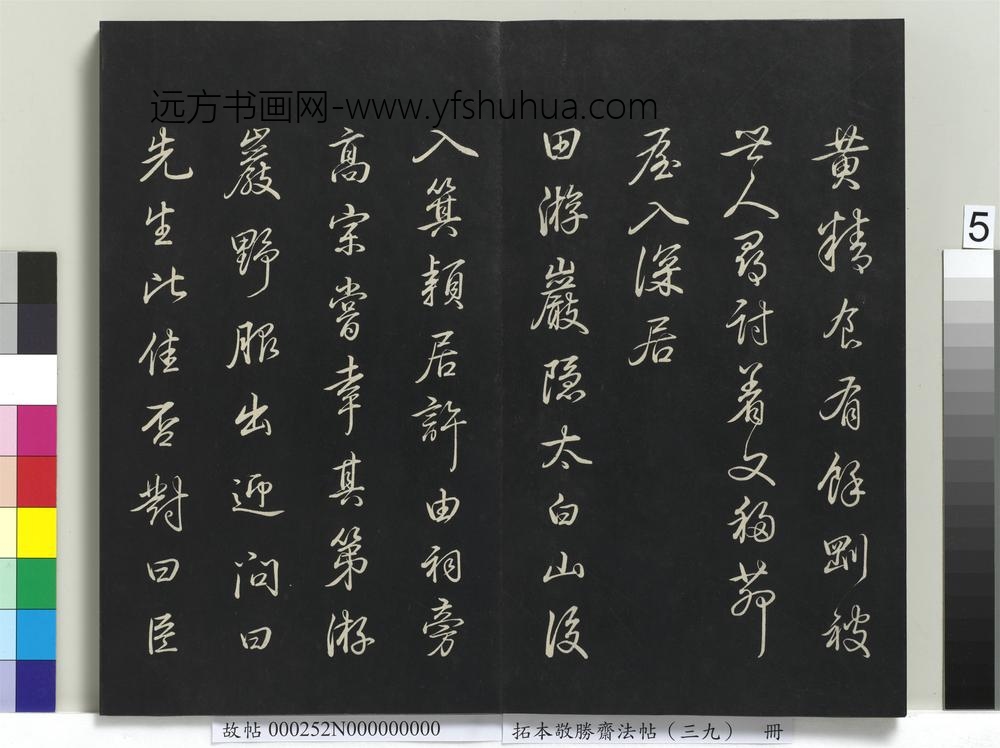 远方书画网-www.yfshuhua.com
黄精食有餘剛被
世人尋討着又移茆
屋入深居
田游巖隐太白山後
入箕頴居許由祠旁
高宗嘗幸其第游
巖野服出迎问曰
先生比佳否對曰臣
5
故帖 000252N000000000
拓本敬勝齋法帖（三九） 冊